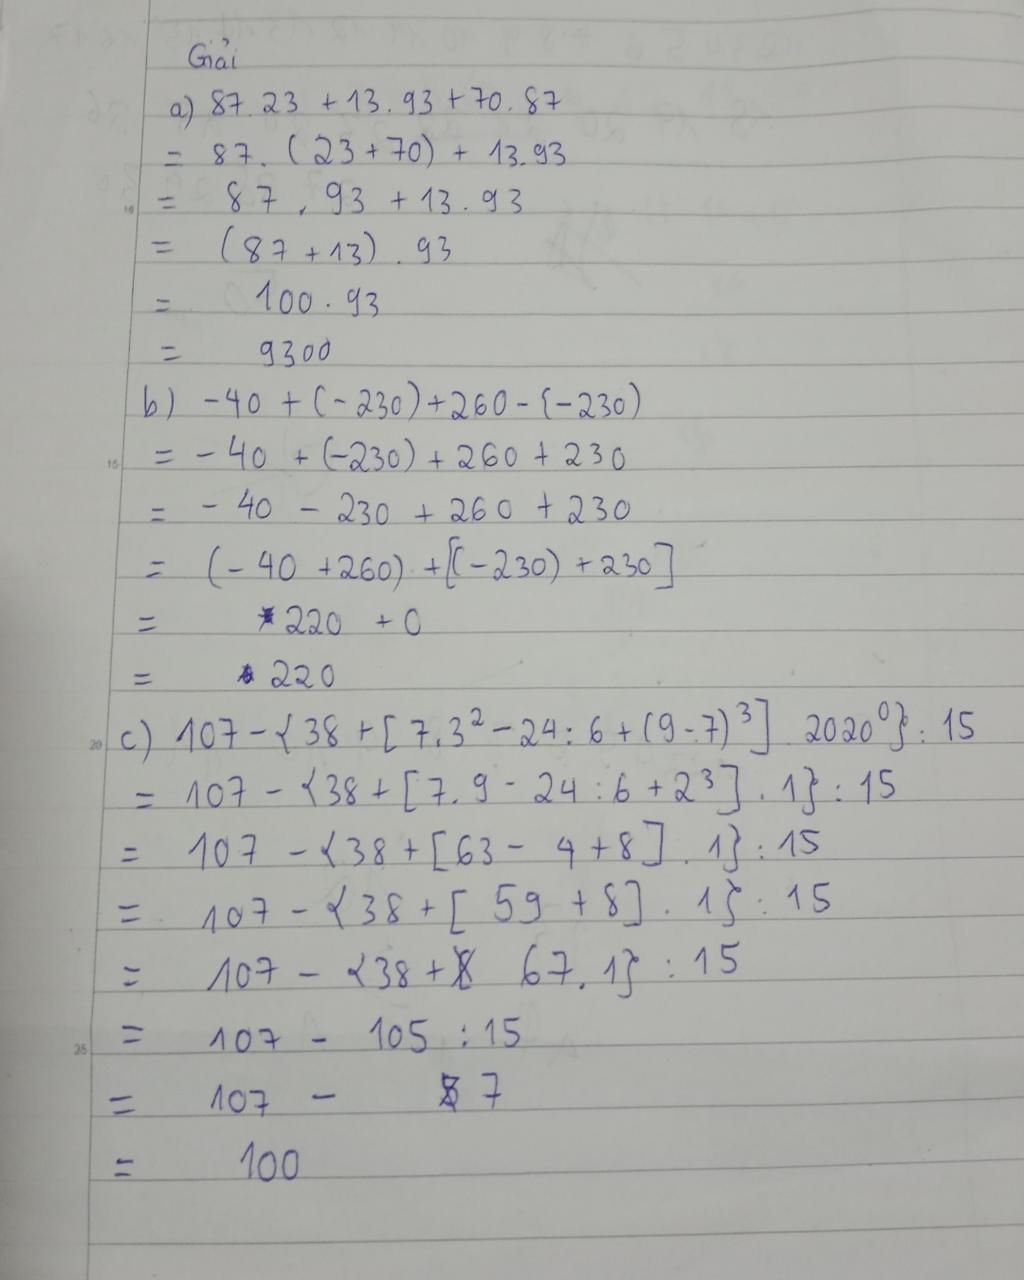 Giải
a) 87.23 + 13.93 + 70.87
= 87.(23+70) + 13.93
10 = 87.93 + 13.93
= (87+13).93
= 100.93
= 9300
b) -40 + (-230) + 260 - (-230)
15 = - 40 + (-230) + 260 + 230
= - 40 - 230 + 260 + 230
= (- 40 + 260) + [(-230) + 230]
= 220 + 0
= 220
20 c) 107 - {38 + [7.3² - 24 : 6 + (9-7)³] . 2020⁰} : 15
= 107 - {38 + [7.9 - 24 : 6 + 2³] . 1} : 15
= 107 - {38 + [63 - 4 + 8] . 1} : 15
= 107 - {38 + [59 + 8] . 1} : 15
= 107 - {38 + 67.1} : 15
25 = 107 - 105 : 15
= 107 - 7
= 100